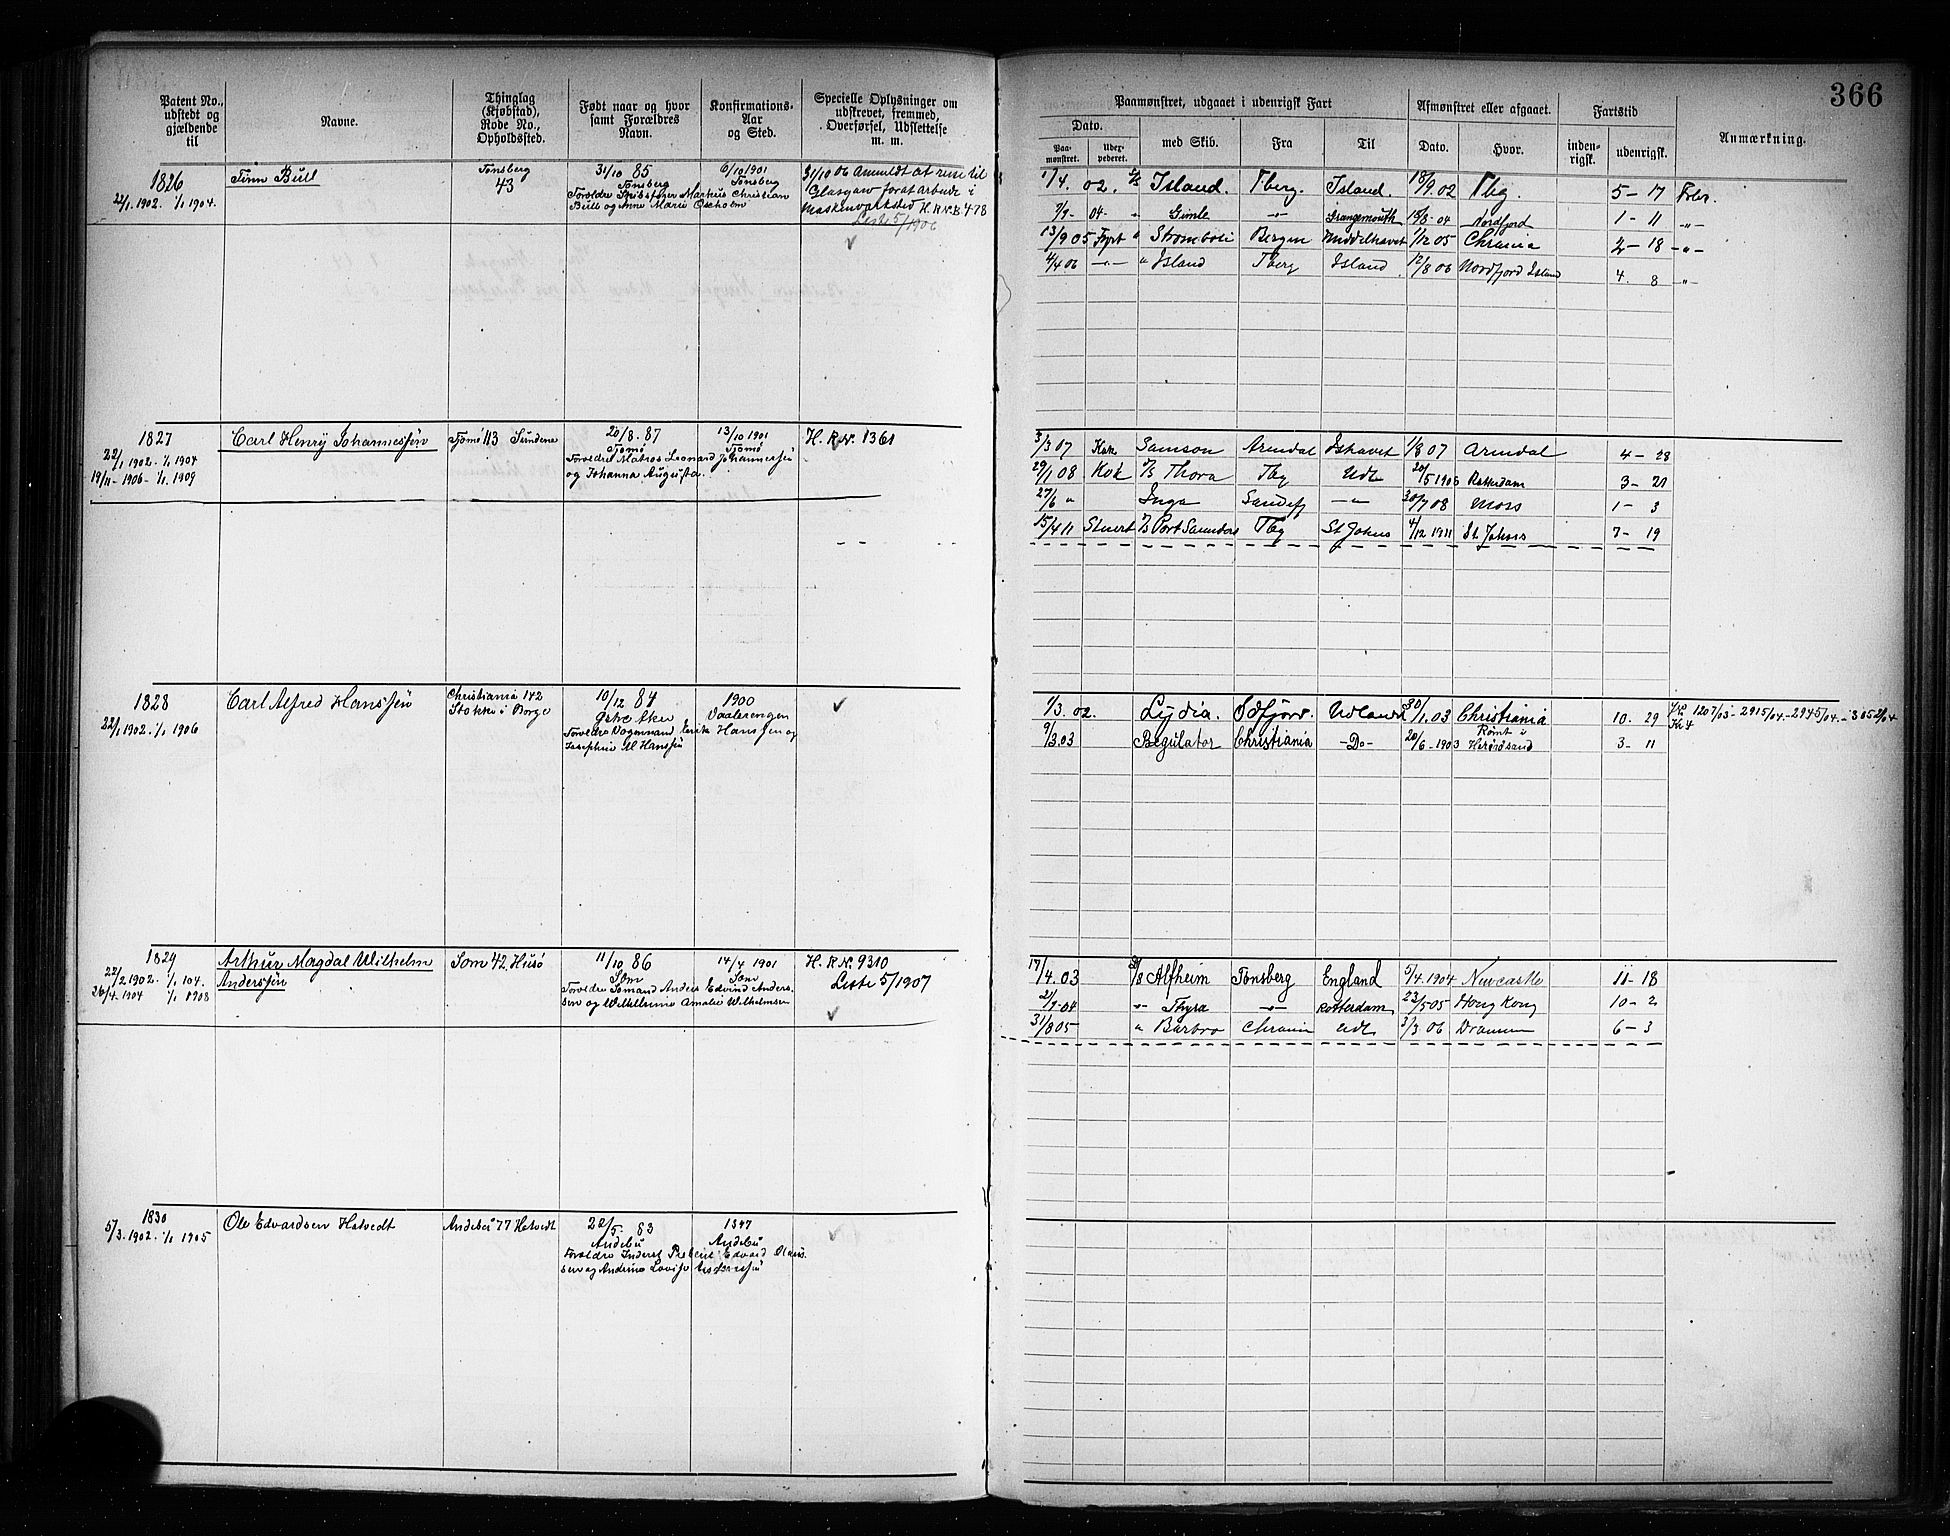 366
Patent No., udstedt og gjældende til
Navne.
Thinglag (Kjøbstad), Rode No., Opholdssted.
Født naar og hvor samt Forældres Navn.
Konfirmations- Aar og Sted.
Specielle Oplysninger om udskrevet, fremmed, Overførsel, Udslettelse m. m.
Paamønstret, udgaaet i udenrigsk Fart
Afmønstret eller afgaaet.
Fartstid
Anmærkning.
Dato.
Paa- mønstret.
Uder- pederet.
med Skib.
Fra
Til
Dato.
Hvor.
inden- rigsk.
udenrigsk.
1826
22/1. 1902. 1/1 1904.
Finn Bull
Tønsberg
43
31/10 85
Tønsberg
6/10 1901
Tønsberg
Forældre Skibsfører Markus Christian
Bull og Anne Marie
31/10 06 Anmeldt at reise til
Glasgow forat arbeide i
H. R. N. B 478
Liste 5/1906
1/4. 02. Island. Tberg. Island. 18/9 02 Tbg. 5 - 17
7/7- 04- " Gimle -"- Grangemouth 18/8- 04 Nordfjord 1 - 11 -"-
13/9 05 Fyrb " Stromboli Bergen Middelhavet 1/12 05 Chrania 2 - 18 -"-
4/4 06 -"- " Island Tberg Island 12/8 06 Nordfjord Island 4. 8 -"-
1827
22/1 1902. 1/1 1904
19/11- 1906- 1/1 1909
Carl Henry Johannessen
Tjømø 113 Sundene
20/8. 87
Tjømø
13/10 1901
Tjømø
Forældre Matros Leonard Johannessen
og Johanna Augusta.
H. R. N. 1361
3/3 07 Kok Samson Arendal Ishavet 1/8 07 Arendal 4 - 28
29/1 08 Kok Thora Tbg Udl 20/5 1908 Rotterdam 3 - 21
27/6 " Inga Sandefj -"- 30/7 08 Moss 1 - 3
15/4 11 Stuert Port Saunders Tbg St Johns 4/12 1911 St Johns 7 - 19
1828
22/1 1902. 1/1 1906
Carl Alfred Hanssen
Christiania 142
Stokke i Borge
10/12 84
1900
Vaalerengen
Forældre Hanssen og
Josephine M Hanssen
1/3. 02. Lydia. Odfjord. Udlandet 30/1 03 Christiania 10. 29
1207/03 - 2915/04 - 2945/04 - 3052/04
9/3 03 Regulator Christiania -Do- 20/6 - 1903 Rømt i 3- 11
1829
22/2 1902. 1/1 04.
26/4. 1904 1/1 1908
Arthur Magdal Wilhelm
Anderssen
Sem 42. Husø
11/10 86
Sem
14/4 1901
Sem
Forældre Sømand Anders Edvind Anders-
sen og Wilhelmine Amalie Wilhelmsen
H. R. N. 9310
Liste 5/1907
17/4. 03 Alfheim Tønsberg England 5/4. 1904 Newcastle 11 - 18
21/7- 04 -"- Thyra -"- Rotterdam 23/5 05 Hong Kong 10 - 2
31/8 05 " Barbro Chrania Udl 3/3 06 Drammen 6 - 3
1830
5/3. 1902. 1/1 1905
Ole Edvardsen Hatvedt
Andebu 77 Hatvedt
22/5. 83
Andebu
1897
Andebu
Forældre Inderst Edvard Olaus-
sen og Andrine Lovise Anderssen